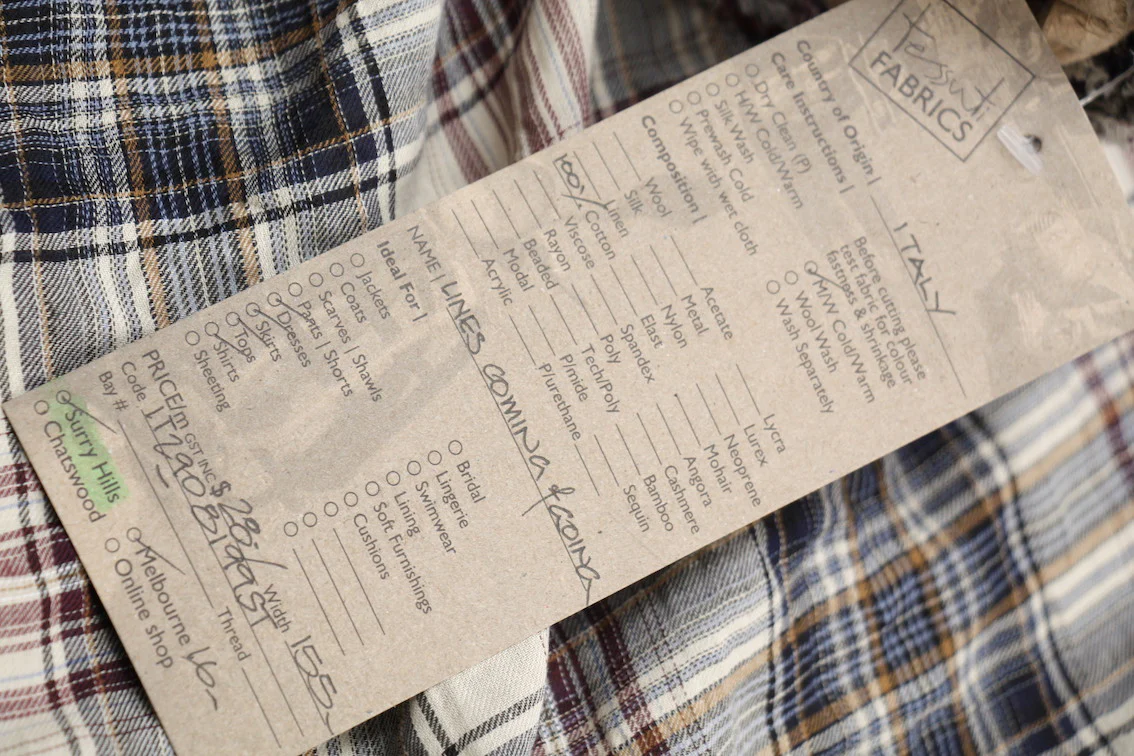 Tessuti
FABRICS
Country of Origin | ITALY
Care Instructions |
Before cutting please
test fabric for colour
fastness & shrinkage
Dry Clean (P)
H/W Cold/Warm
Silk Wash
Prewash Cold
Wipe with wet cloth
M/W Cold/Warm
Wool Wash
Wash Separately
Composition |
Wool
Silk
Linen
100% Cotton
Viscose
Rayon
Beaded
Modal
Acrylic
Acetate
Metal
Nylon
Elast
Spandex
Poly
Tech/Poly
P/mide
P/urethane
Lycra
Lurex
Neoprene
Mohair
Angora
Cashmere
Bamboo
Sequin
NAME | LINES COMING & GOING
Ideal For |
Jackets
Coats
Scarves | Shawls
Pants | Shorts
Dresses
Skirts
Tops
Shirts
Sheeting
Bridal
Lingerie
Swimwear
Lining
Soft Furnishings
Cushions
PRICE/m GST INC $ Width 155
Code
Bay # Thread
Surry Hills
Chatswood
Melbourne
Online shop